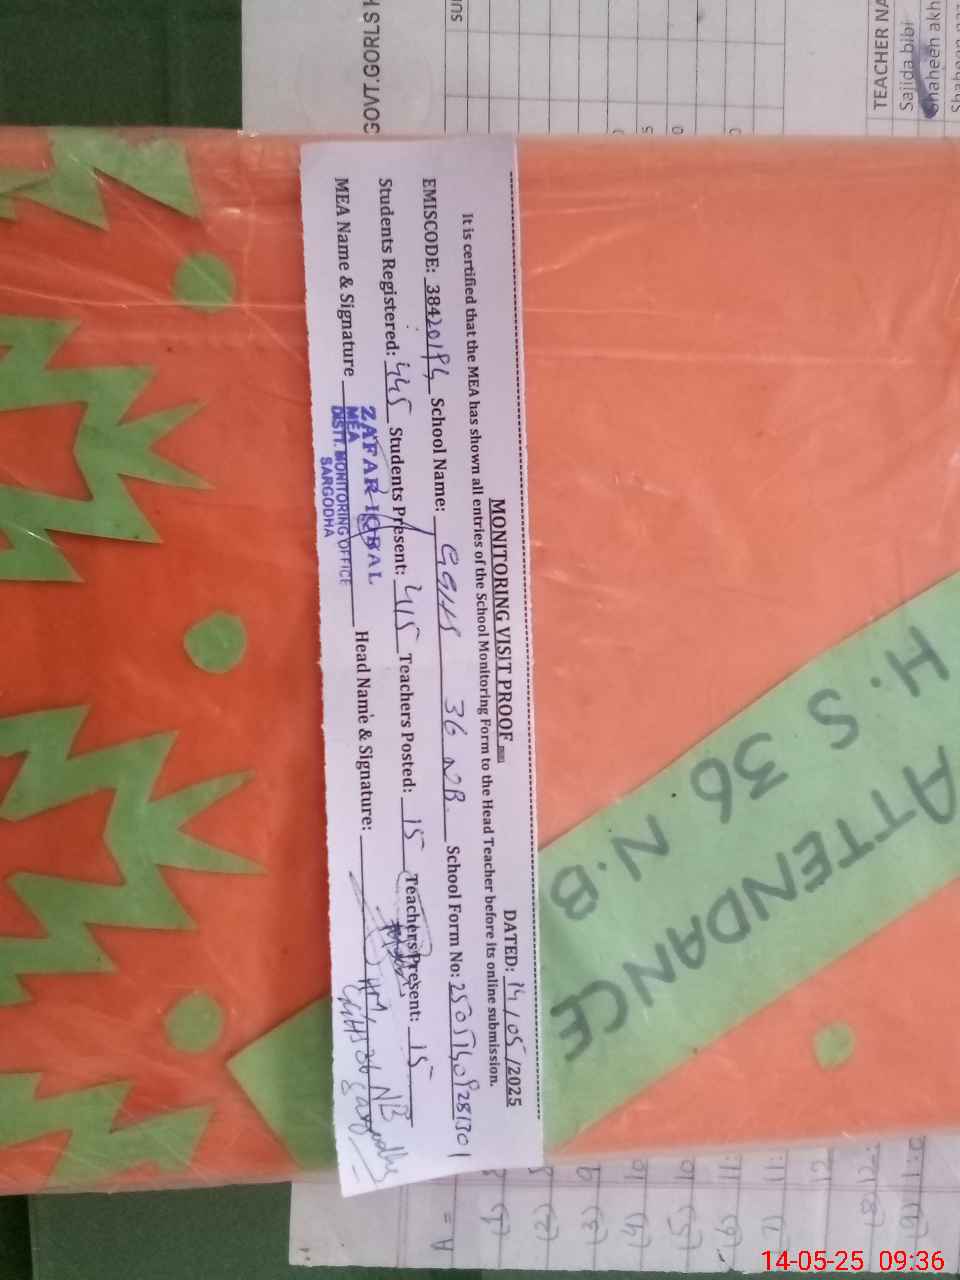 MONITORING VISIT PROOF
DATED: 14/05/2025
It is certified that the MEA has shown all entries of the School Monitoring Form to the Head Teacher before its online submission.
EMISCODE: 38420194 School Name: GGHS 36 NB School Form No:
Students Registered: 445 Students Present: 415 Teachers Posted: 15 Teachers Present: 15
MEA Name & Signature Head Name & Signature:
ZAFAR IQBAL
MEA
DISTT. MONITORING OFFICE
SARGODHA
HM
GGHS 36 NB
Sargodha
ATTENDANCE
H.S 36 N.B
GOVT.GORLS H
TEACHER NA
Sajida bibi
14-05-25 09:36